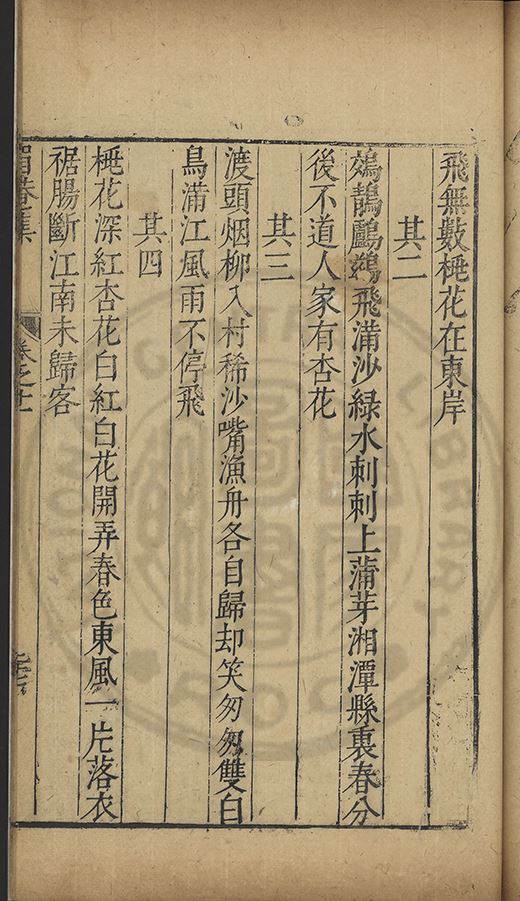 飛無數桃花在東岸
其二
鵁鶄鸂鶒飛滿沙綠水刺刺上蒲芽湘潭縣裏春分
後不道人家有杏花
其三
渡頭烟柳入村稀沙嘴漁舟各自歸却笑匆匆雙白
鳥滿江風雨不停飛
其四
桃花深紅杏花白紅白花開弄春色東風一片落衣
裾腸斷江南未歸客
眉菴集
卷之十一